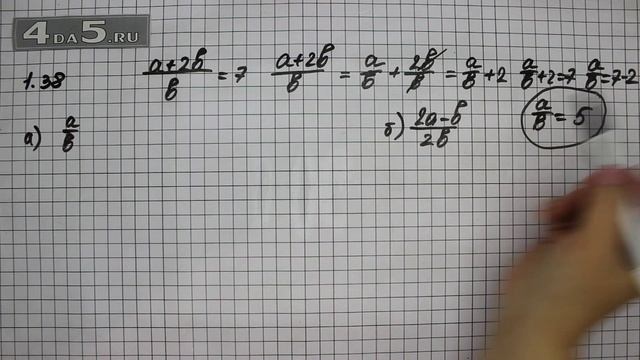 4DA5.RU
1.38 (a+2b)/b = 7 (a+2b)/b = a/b + 2b/b = a/b + 2 a/b + 2 = 7 a/b = 7-2
а) a/b б) (2a-b)/2b a/b = 5